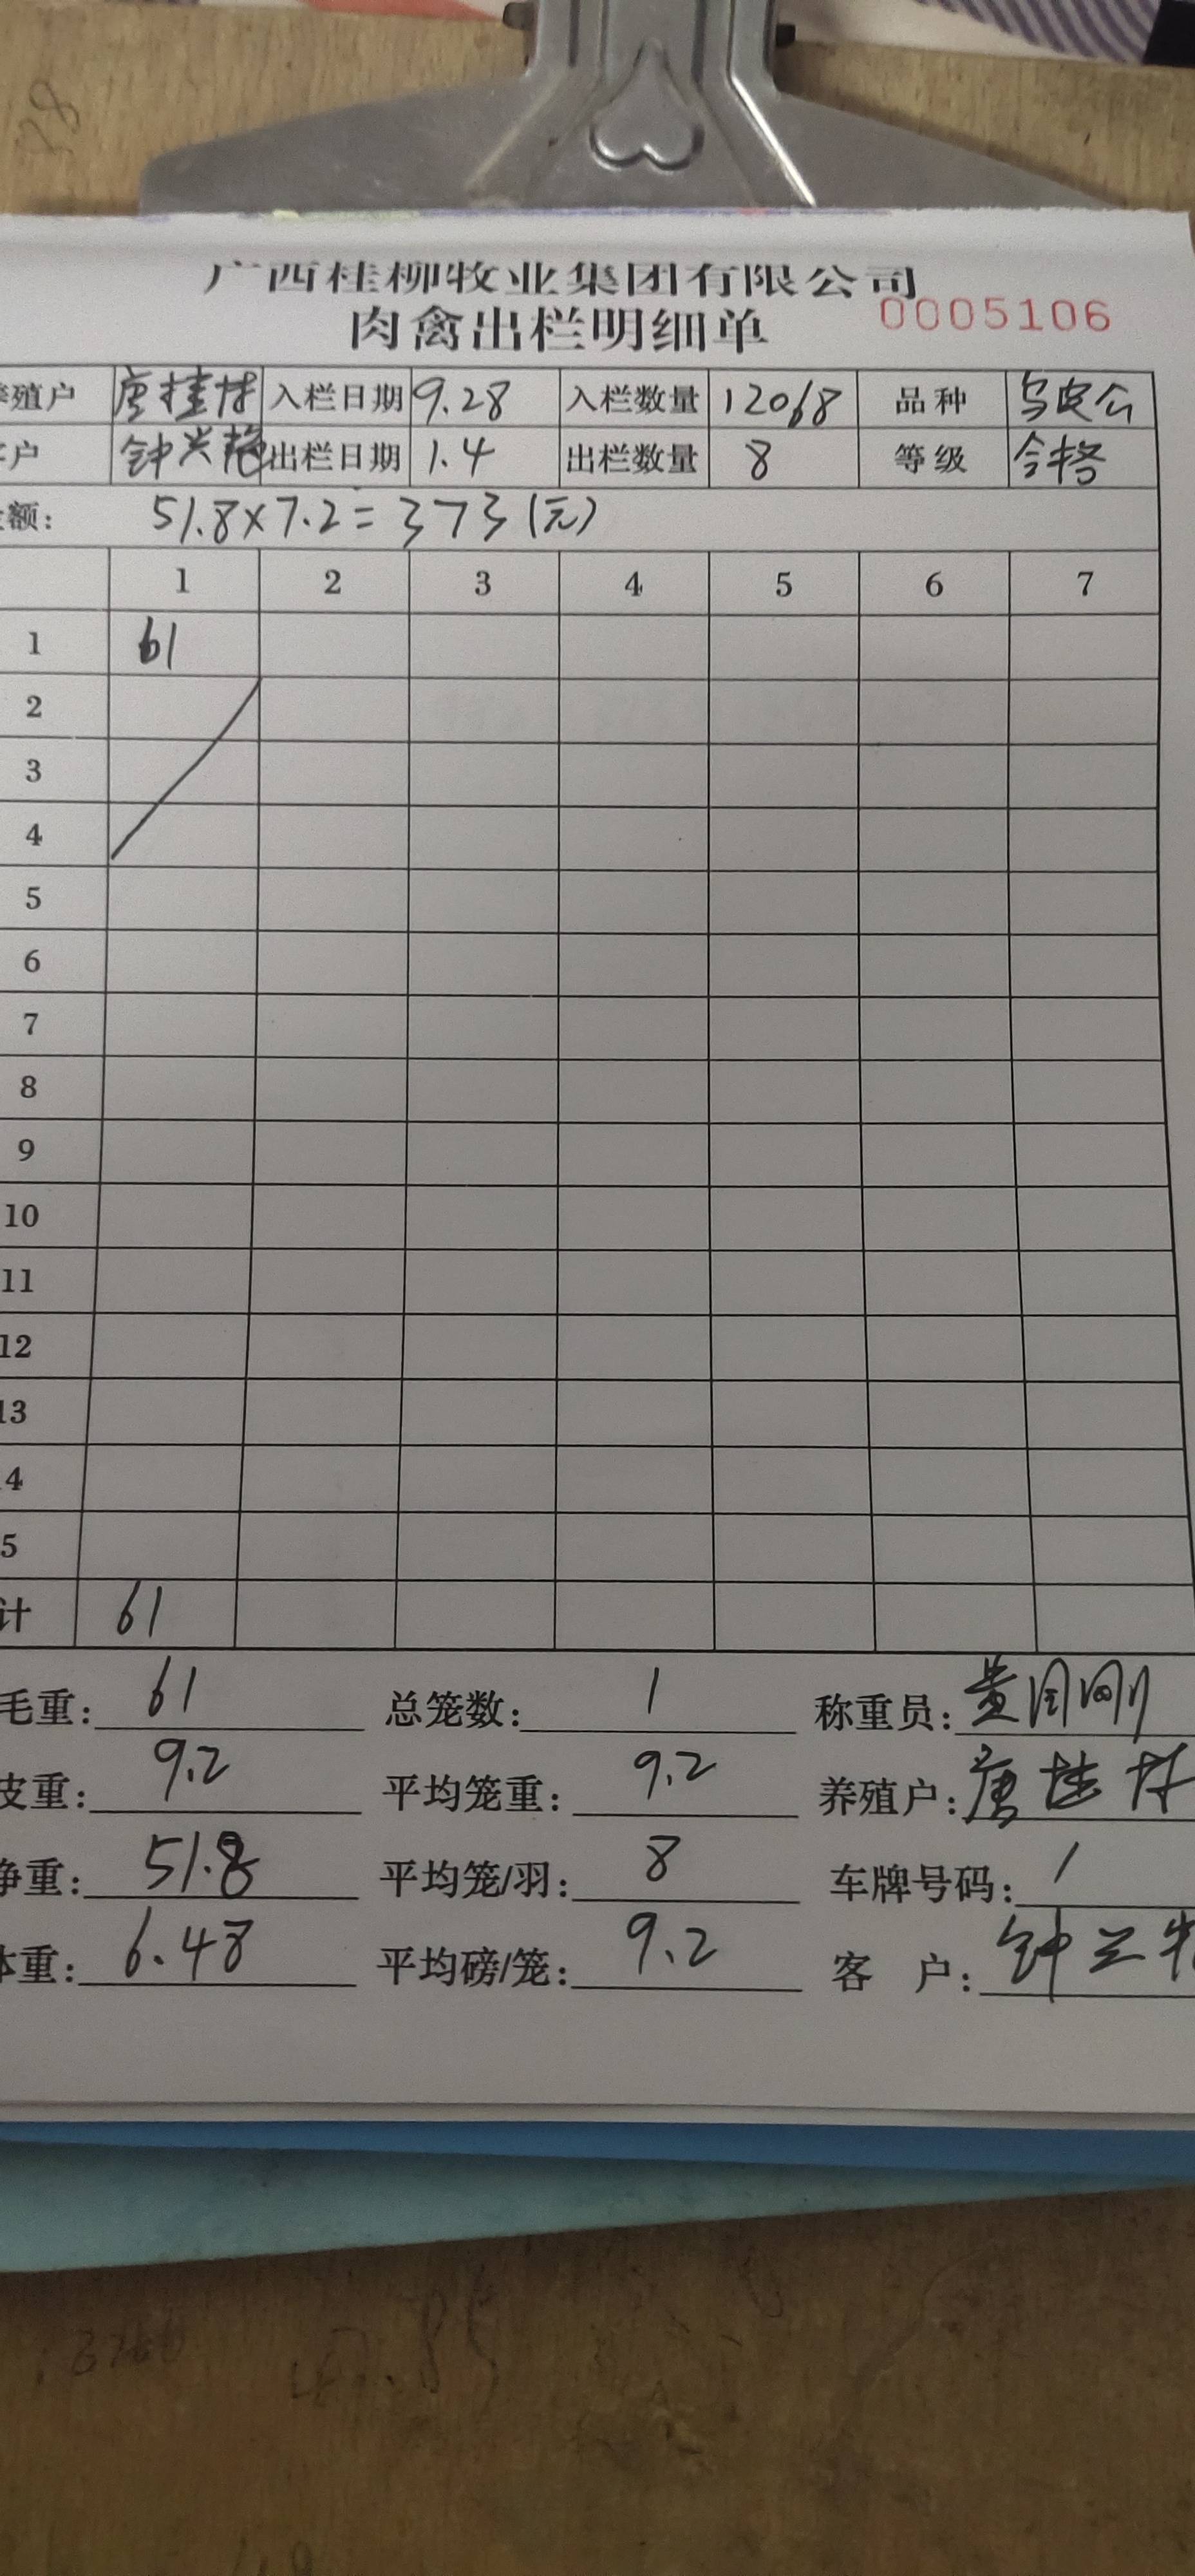 广西桂柳牧业集团有限公司
肉禽出栏明细单 0005106
殖户 唐桂林 入栏日期 9.28 入栏数量 12068 品种 乌皮公
户 钟兴艳 出栏日期 1.4 出栏数量 8 等级 合格
额: 51.8×7.2=373(元)
1 2 3 4 5 6 7
1 61
2
3
4
5
6
7
8
9
10
11
12
13
4
5
计 61
毛重: 61 总笼数: 1 称重员:
皮重: 9.2 平均笼重: 9.2 养殖户: 唐桂林
净重: 51.8 平均笼/羽: 8 车牌号码: /
体重: 6.48 平均磅/笼: 9.2 客 户: 钟兰